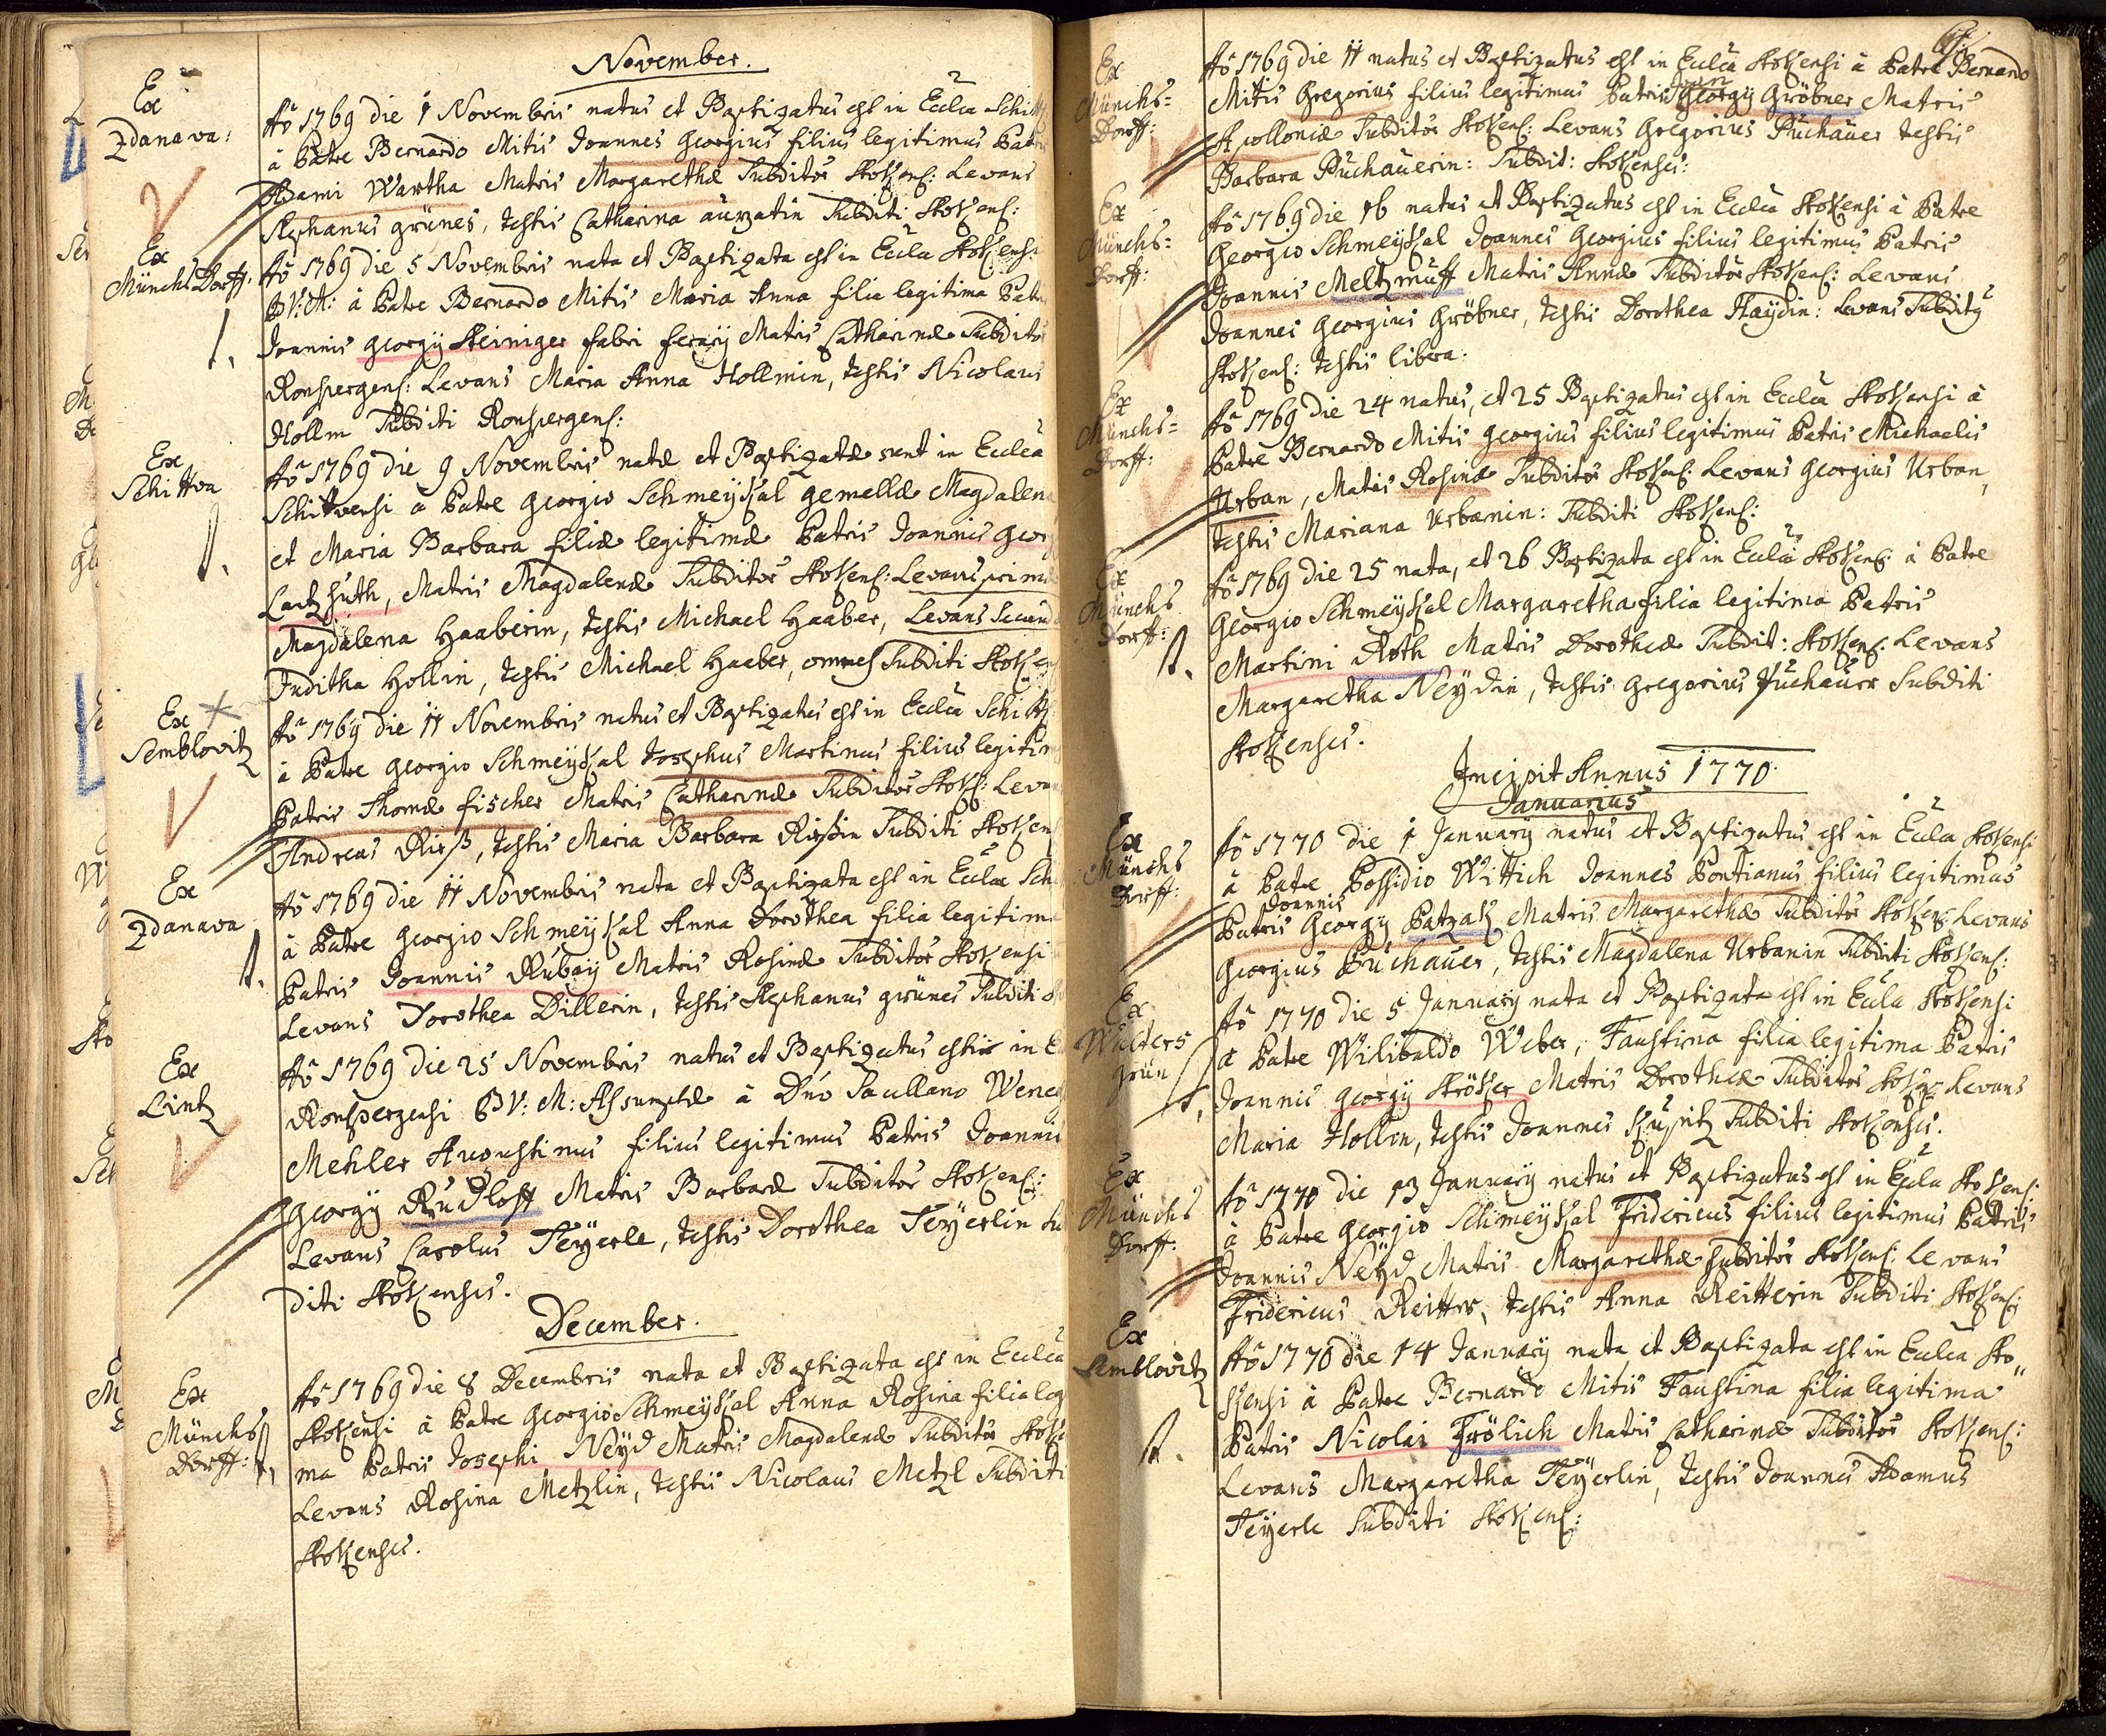 November.
Ex
Zdanava:
Aõ 1769 die 1 Novembris natus et Baptizatus est in Eccla
à Patre Bernardo Mitis Joannes Georgius filius legitimus
Adami Wartha Matris Margarethæ Subditor Stokens: Levans
Stephanus grünes, testis Catharina Subditi Stokens:
Ex
Münchsdorff.
Aõ 1769 die 5 Novembris nata et Baptizata est in Eccla
B V: M: à Patre Bernardo Mitis Maria Anna filia legitima
Joannis Georgÿ Steiniger fabri ferarÿ Matris Catharinæ
Ronspergens: Levans Maria Anna Hollmin, testis Nicolaus
Hollm Subditi Ronspergens:
Ex
Schittwa
Aõ 1769 die 9 Novembris natæ et Baptizatæ sunt in Eccla
Schittwensi a Patre Georgio Schmeÿkal gemellæ
et Maria Barbara filiæ legitimæ Patris Joannis
Matris Magdalenæ Subditor Stokens: Levans
Magdalena Haaberin, testis Michael Haaber, Levans
Juditha Hollin, testis Michael Haaber, omnes Subditi
Ex
Semblovitz
Aõ 1769 die 11 Novembris natus et Baptizatus est in Eccla
à Patre Georgio Schmeÿkal Josephus Martinus filius
Patris Thomæ fischer Matris Catharinæ Subditor Stok:
Andreas testis Maria Barbara Subditi
Ex
Zdanava
Aõ 1769 die 11 Novembris nata et Baptizata est in Eccla
à Patre Georgio Schmeÿkal Anna Dorothea filia
Patris Joannis Rubaÿ Matris Rosinæ Subditor Stokensi
Levans Dorothea Dillerin, testis Stephanus grünes Subditi
Ex
Lintz
Aõ 1769 die 25 Novembris natus et Baptizatus est in
Ronspergensi B V: M: Assumptæ à
Mehler Augustinus filius legitimus Patris Joannis
Georgÿ Rudloff Matris Barbaræ Subditor Stokens:
Levans Carolus Teÿerle, testis Dorothea Teÿerlin Su
diti Stokensis.
December.
Ex
Münchs
Dorff:
Aõ 1769 die 8 Decembris nata et Baptizata est in Eccla
Stokensi à Patre Georgio Schmeÿkal Anna Rosina filia leg
ma Patris Josephi Neÿd Matris Magdalenæ Subditor
Levans Rosina Metzlin, testis Nicolaus Metzl Subditi
Stokensis.
Ex
Münchs=
Dorff:
Aõ 1769 die 11 natus et Baptizatus est in Eccla Stokensi à Patre Bernardo
Mitis Gregorius filius legitimus Patris Georgÿ Gröbner Matris
Apolloniæ Subditor Stokens: Levans Gregorius Puchauer testis
Barbara Puchauerin: Subdit: Stokensis:
Ex
Münchs=
Dorff:
Aõ 1769 die 16 natus et Baptizatus est in Eccla Stokensi à Patre
Georgio Schmeÿkal Joannes Georgius filius legitimus Patris
Joannis Meltzmuff Matris Annæ Subditor Stokens: Levans
Joannes Georgius Gröbner, testis Dorothea Haÿdin: Levans
Stokens: testis libera:
Ex
Münchs=
Dorff:
Aõ 1769 die 24 natus, et 25 Baptizatus est in Eccla Stokensi à
Patre Bernardo Mitis Georgius filius legitimus Patris Michaelis
Urban, Matris Rosinæ Subditor Stokens: Levans Georgius Urban,
testis Mariana Urbanin: Subditi Stokens:
Ex
Münchs
Dorff:
Aõ 1769 die 25 nata, et 26 Baptizata est in Eccla Stokens: à Patre
Georgio Schmeÿkal Margaretha filia legitima Patris
Martini Roth Matris Dorotheæ Subdit: Stokens: Levans
Margaretha Neÿdin, testis Gregorius Puchauer Subditi
Stokensis.
Incipit Annus 1770.
Januarius
Ex
Münchs
Dorff:
Aõ 1770 die 1 Januarÿ natus et Baptizatus est in Eccla Stokensi
à Patre Possidio Wittich Joannes Pontianus filius legitimus
Joannis
Patris Georgÿ Matris Margarethæ Subditor Stokens: Levans
Georgius Puchauer, testis Magdalena Urbanin Subditi Stokens:
Ex
Walters
grün
Aõ 1770 die 5 Januarÿ nata et Baptizata est in Eccla Stokensi
à Patre Wilibaldo Weber, Faustina filia legitima Patris
Joannis Georgÿ Matris Dorotheæ Subditor Levans
Maria Hollin, testis Joannes Subditi Stokensis.
Ex
Münchs
Dorff:
Aõ 1770 die 13 Januarÿ natus et Baptizatus est in Eccla Stokens:
à Patre Georgio Schmeÿkal Fridericus filius legitimus Patris
Joannis Neÿd Matris Margarethæ Subditor Stokens: Levans
Fridericus Reitter, testis Anna Reitterin Subditi Stokens:
Ex
Semblovitz
Aõ 1770 die 14 Januarÿ nata et Baptizata est in Eccla Sto"
kensi à Patre Bernardo Mitis Faustina filia legitima
Patris Nicolai Frölich Matris Catharinæ Subditor Stokens:
Levans Margaretha Teÿerlin, testis Joannes Adamus
Teÿerle Subditi Stokens: